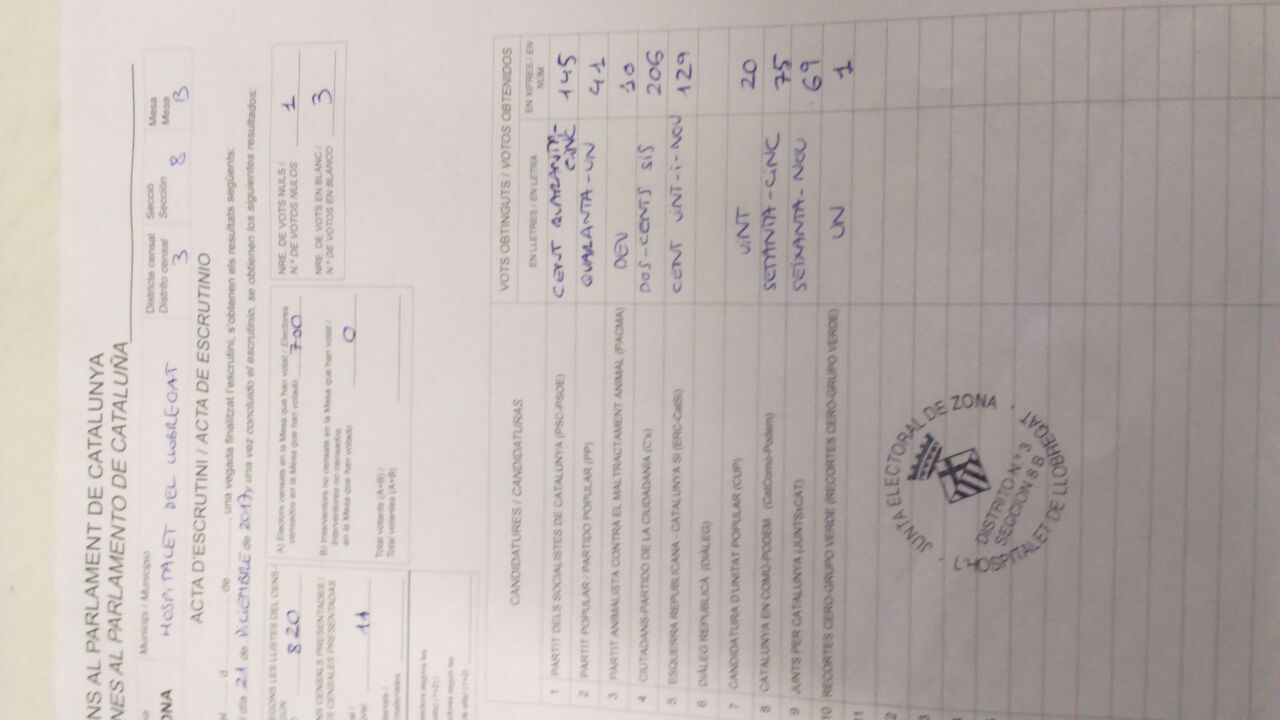 NS AL PARLAMENT DE CATALUNYA
NES AL PARLAMENTO DE CATALUÑA
Municipi / Municipio
HOSPITALET DEL LLOBREGAT
Districte censal
Distrito censal
3
Secció
Sección
8
Mesa
Mesa
B
ONA
ACTA D'ESCRUTINI / ACTA DE ESCRUTINIO
d de , una vegada finalitzat l'escrutini, s'obtenen els resultats següents:
l día 21 de DICIEMBRE de 2017, y una vez concluido el escrutinio, se obtienen los siguientes resultados:
EGONS LES LLISTES DEL CENS /
820
CENSALS PRESENTADES /
CENSALES PRESENTADAS
11
A) Electors censats en la Mesa que han votat / Electores
censados en la Mesa que han votado 700
B) Interventors no censats en la Mesa que han votat /
Interventores no censados
en la Mesa que han votado
0
Total votants (A+B) /
Total votantes (A+B)
NRE. DE VOTS NULS /
N.º DE VOTOS NULOS 1
NRE. DE VOTS EN BLANC /
N.º DE VOTOS EN BLANCO 3
CANDIDATURES / CANDIDATURAS
VOTS OBTINGUTS / VOTOS OBTENIDOS
EN LLETRES / EN LETRA
EN XIFRES / EN NÚM.
1 PARTIT DELS SOCIALISTES DE CATALUNYA (PSC-PSOE) CENT QUARANTA-CINC 145
2 PARTIT POPULAR / PARTIDO POPULAR (PP) QUARANTA-UN 41
3 PARTIT ANIMALISTA CONTRA EL MALTRACTAMENT ANIMAL (PACMA) DEU 10
4 CIUTADANS-PARTIDO DE LA CIUDADANÍA (C's) DOS-CENTS SIS 206
5 ESQUERRA REPUBLICANA CATALUNYA SÍ (ERC-CatSí) CENT VINT-I-NOU 129
6 DIÀLEG REPUBLICÀ (DIÀLEG)
7 CANDIDATURA D'UNITAT POPULAR (CUP) VINT 20
8 CATALUNYA EN COMÚ-PODEM (CatComú-Podem) SETANTA-CINC 75
9 JUNTS PER CATALUNYA (JUNTSxCAT) SEIXANTA-NOU 69
10 RECORTES CERO-GRUPO VERDE (RECORTES CERO-GRUPO VERDE) UN 1
11
12
JUNTA ELECTORAL DE ZONA
DISTRITO Nº 3
SECCION 8 B
HOSPITALET DE LLOBREGAT